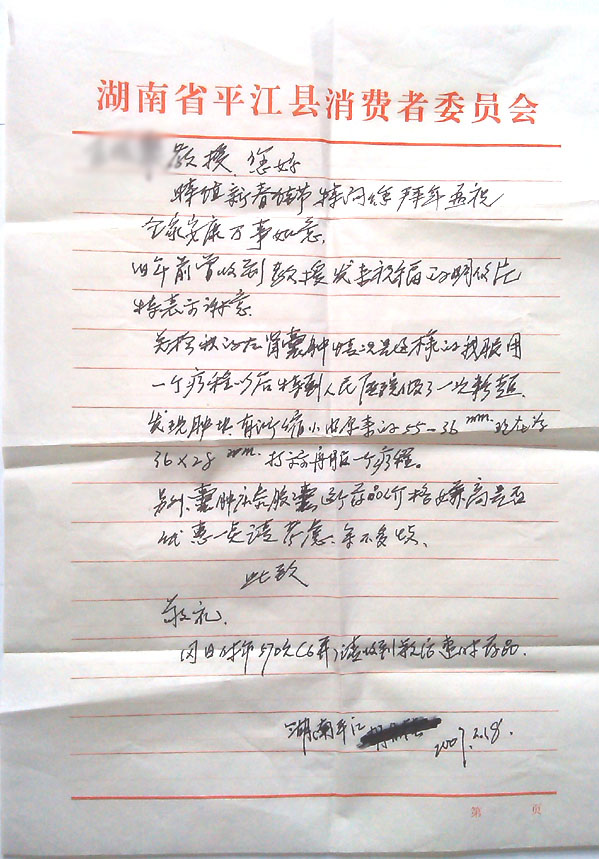 湖南省平江县消费者委员会
教授,您好
特值新春佳节特向您拜年并祝
全家安康万事如意.
旧年前曾收到教授发来祝福的明信片
特表示谢意.
关于我的左肾囊肿情况是这样的我服用
一个疗程以后特到人民医院做了一次彩超.
发现肿块有所缩小由原来的55-36mm.现在为
36×28mm.打算再服一个疗程。
另外囊肿康复胶囊这个药品价格嫌高是否
优惠一点请考虑.余不多叙、
此致
敬礼.
同日付币570元(6瓶)请收到款后惠时药品.
湖南平江
2007.2.18.
第 页